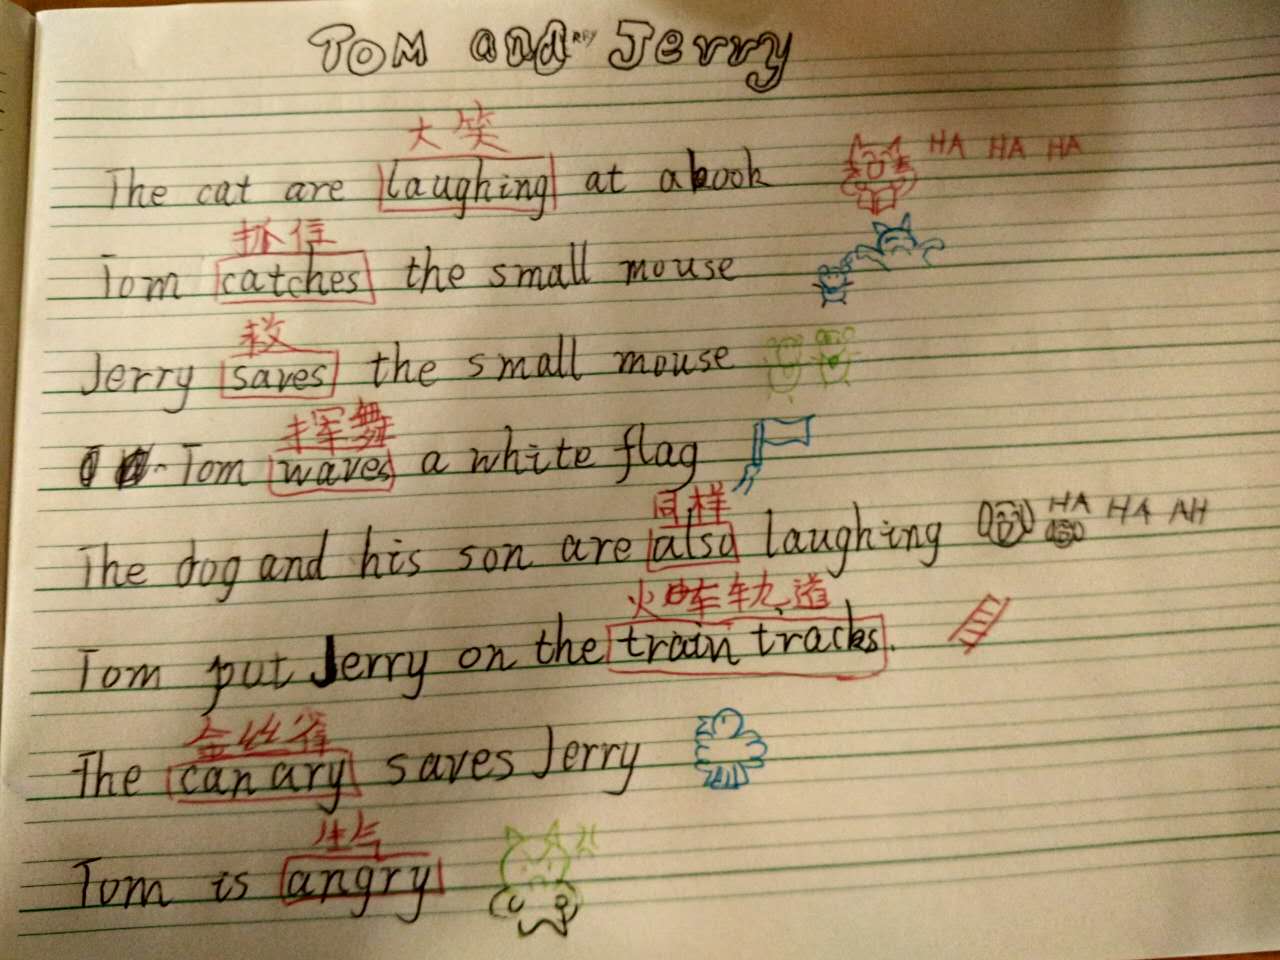 Tom and Jerry
大笑
The cat are laughing at a book
HA HA HA
抓住
Tom catches the small mouse
救
Jerry saves the small mouse
挥舞
Tom waves a white flag
同样
The dog and his son are also laughing
HA HA AH
火车轨道
Tom put Jerry on the train tracks.
金丝雀
The canary saves Jerry
生气
Tom is angry